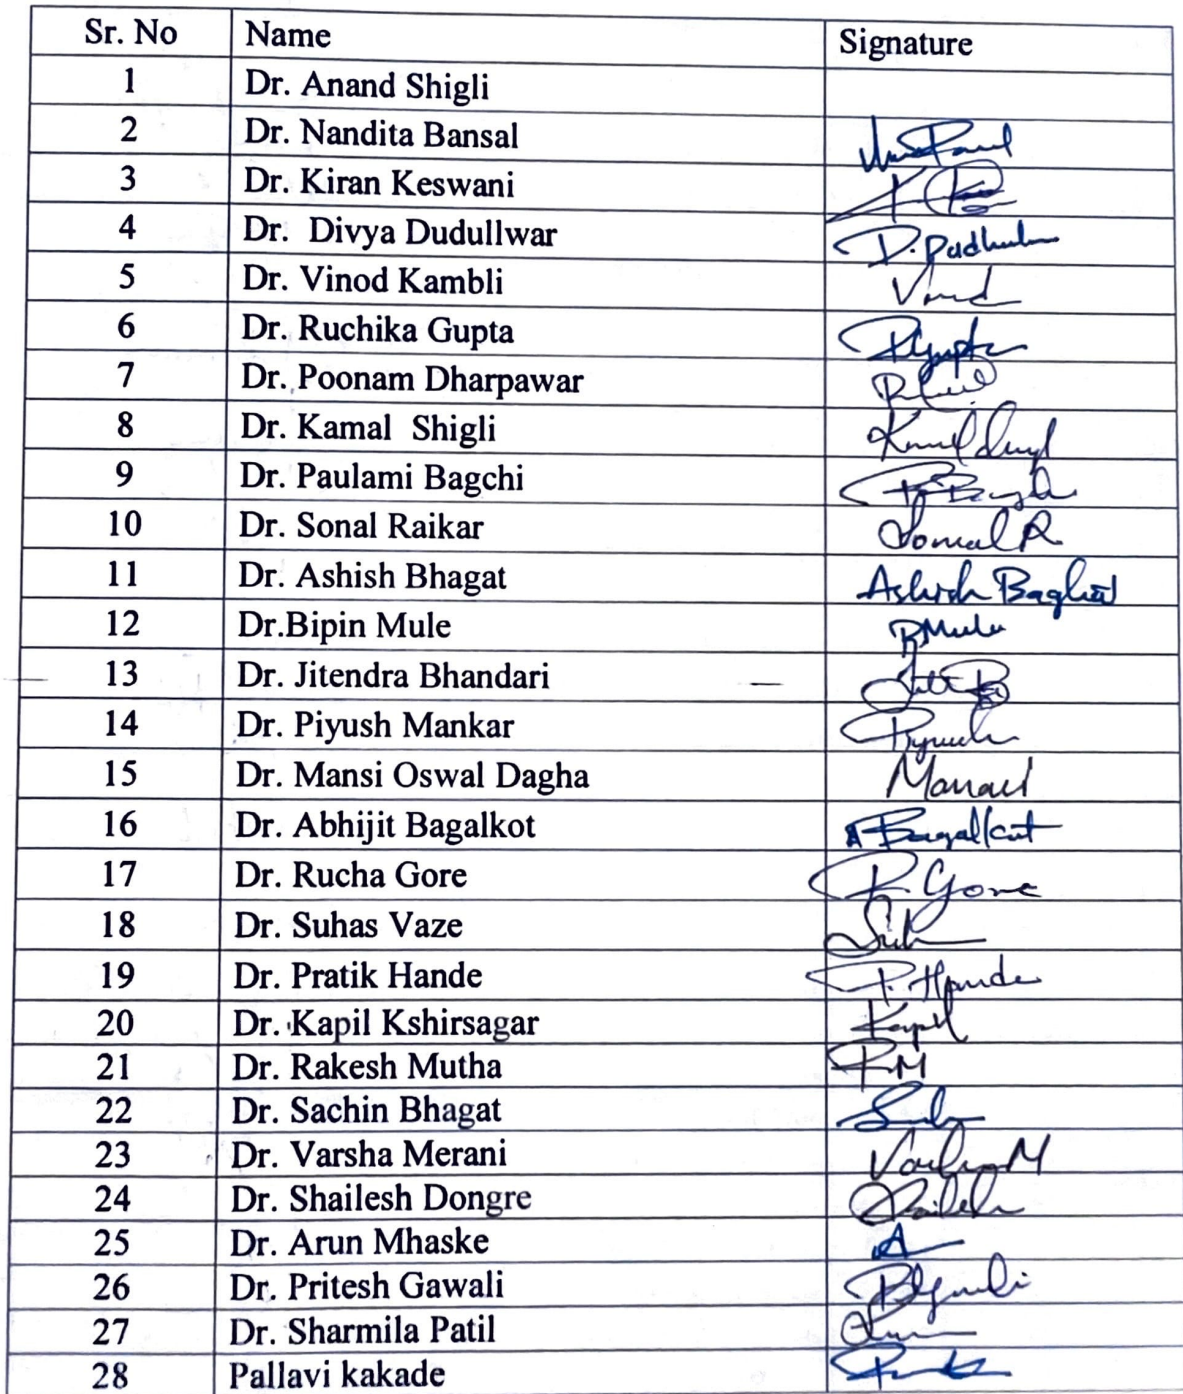 Sr. No Name Signature
1 Dr. Anand Shigli
2 Dr. Nandita Bansal
3 Dr. Kiran Keswani
4 Dr. Divya Dudullwar
5 Dr. Vinod Kambli
6 Dr. Ruchika Gupta
7 Dr. Poonam Dharpawar
8 Dr. Kamal Shigli
9 Dr. Paulami Bagchi
10 Dr. Sonal Raikar Sonal R
11 Dr. Ashish Bhagat
12 Dr.Bipin Mule
13 Dr. Jitendra Bhandari
14 Dr. Piyush Mankar
15 Dr. Mansi Oswal Dagha
16 Dr. Abhijit Bagalkot A Bagalkot
17 Dr. Rucha Gore R. Gore
18 Dr. Suhas Vaze
19 Dr. Pratik Hande P. Hande
20 Dr. Kapil Kshirsagar Kapil
21 Dr. Rakesh Mutha RM
22 Dr. Sachin Bhagat
23 Dr. Varsha Merani
24 Dr. Shailesh Dongre
25 Dr. Arun Mhaske A
26 Dr. Pritesh Gawali
27 Dr. Sharmila Patil
28 Pallavi kakade